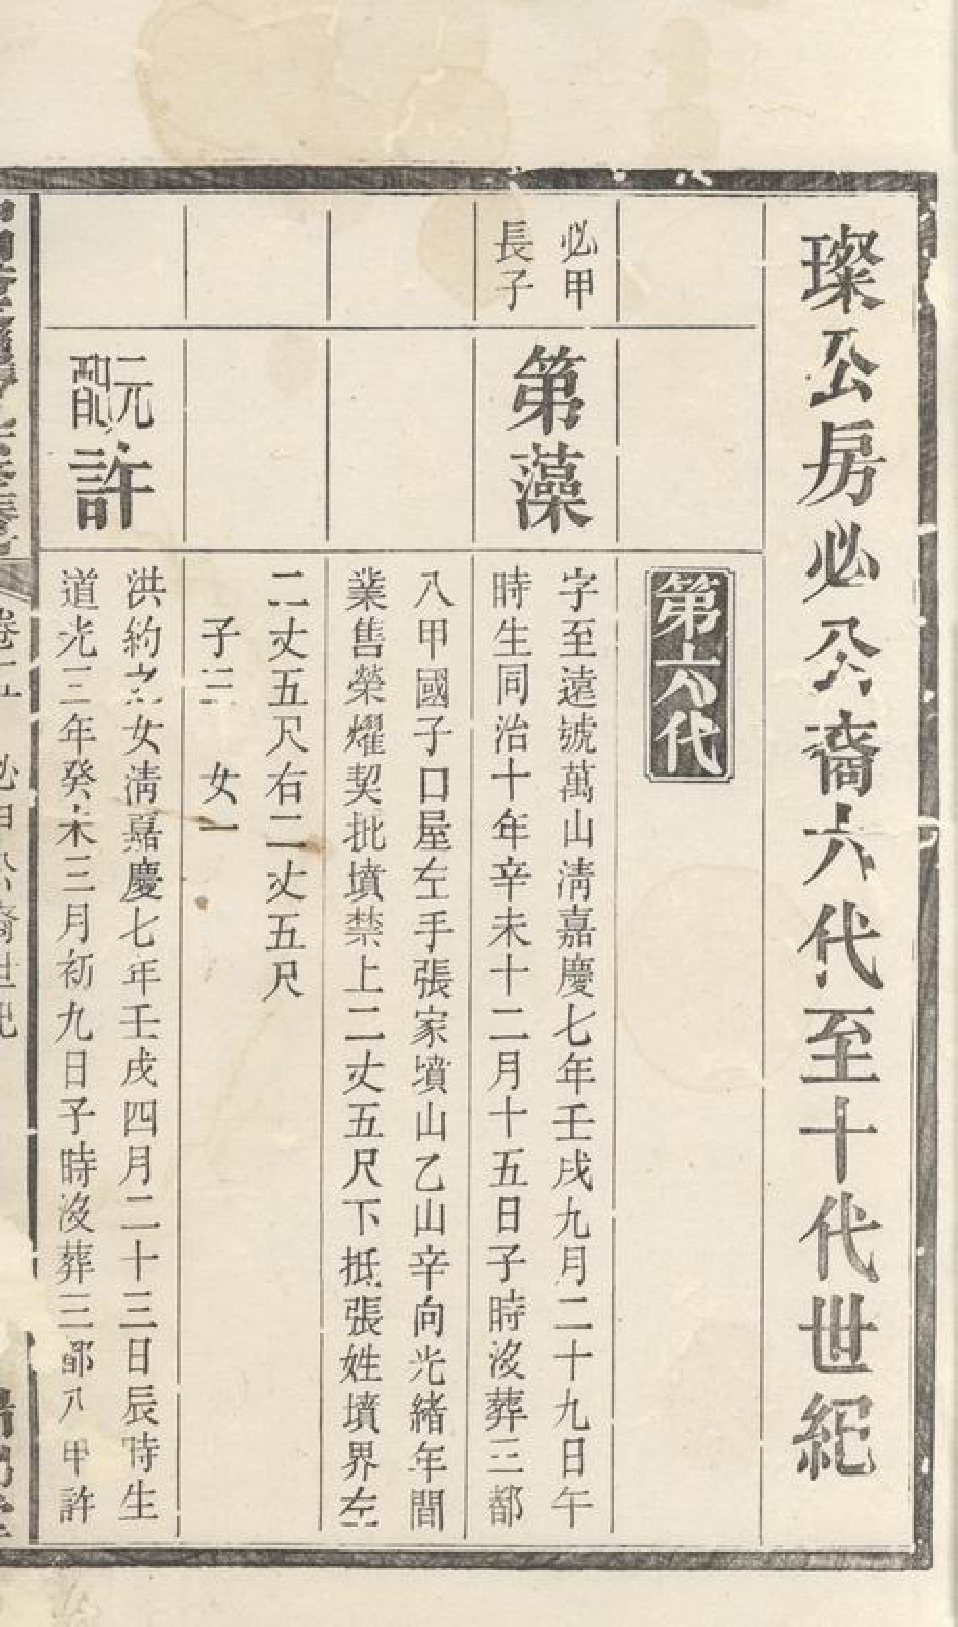 璨公房必公裔六代至十代世紀
第六代
必甲
長子
第藻
字至遠號萬山淸嘉慶七年壬戌九月二十九日午
時生同治十年辛未十二月十五日子時沒葬三都
八甲國子口屋左手張家墳山乙山辛向光緒年間
業售榮耀契批墳禁上二丈五尺下抵張姓墳界左
二丈五尺右二丈五尺
子三 女一
元
配
許
洪約之女淸嘉慶七年壬戌四月二十三日辰時生
道光三年癸未三月初九日子時沒葬三都八甲許
必甲公裔世紀